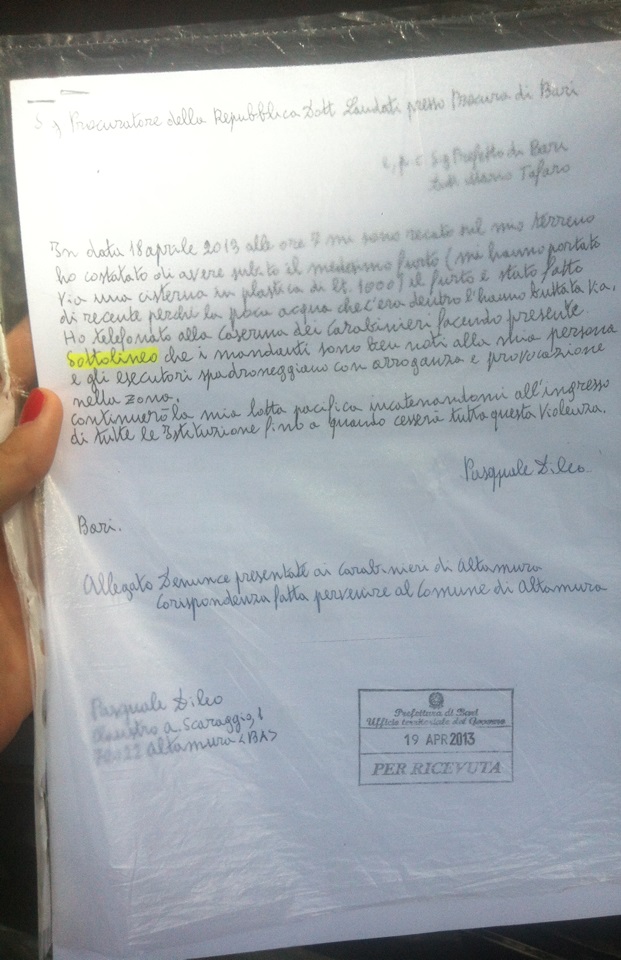 S g Procuratore della Repubblica Dott Laudati presso Procura di Bari
e, p. c. S.g Prefetto di Bari
dott. Mario Tafaro
In data 18 aprile 2013 alle ore 7 mi sono recato sul mio terreno
ho costatato di avere subito il medesimo furto (mi hanno portato
via una cisterna in plastica di Lt. 1000) il furto è stato fatto
di recente perchè la poca acqua che c'era dentro l'hanno buttata via.
Ho telefonato alla caserma dei Carabinieri facendo presente.
Sottolineo che i mandanti sono ben noti alla mia persona
e gli esecutori spadroneggiano con arroganza e provocazione
nella zona.
continuerò la mia lotta pacifica incatenandomi all'ingresso
di tutte le Istituzione fino a quando cesserà tutta questa violenza.
Pasquale Dileo
Bari.
Allegato Denunce presentate ai Carabinieri di Altamura
Corispondenza fatta pervenire al Comune di Altamura
Pasquale Dileo
Claustro A. Scaraggio, 1
70022 Altamura (BA)
Prefettura di Bari
Ufficio territoriale del Governo
19 APR 2013
PER RICEVUTA